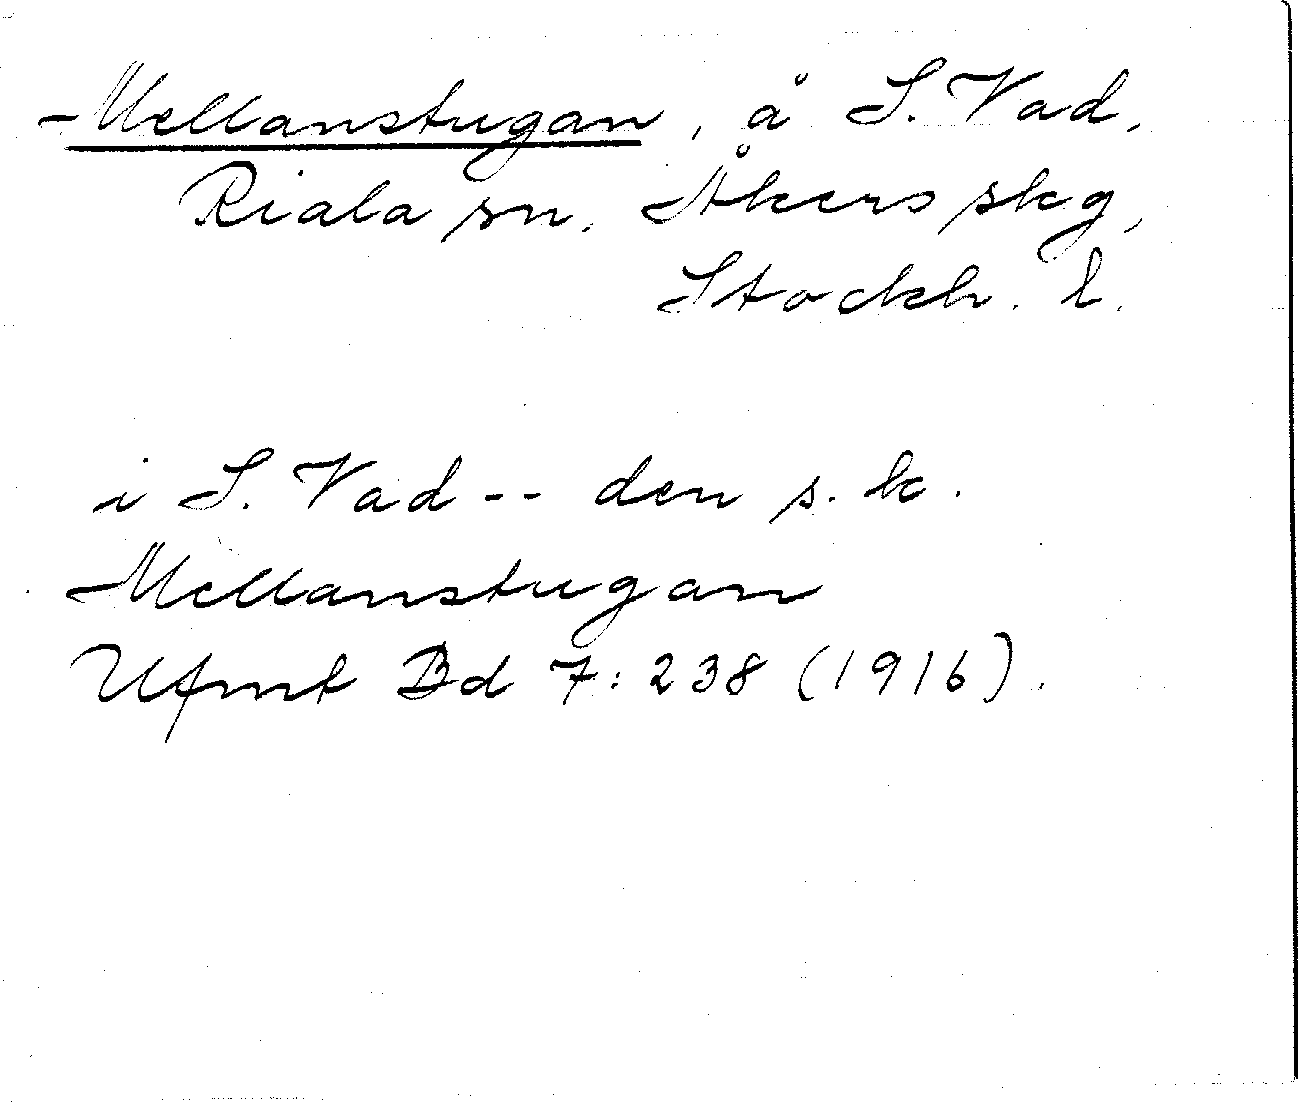 Mellanstugan, å S. Vad,
Riala sn. Åkers skg,
Stockh. l.
i S. Vad -- den s. k.
Mellanstugan
Ufmt Bd 7: 238 (1916).